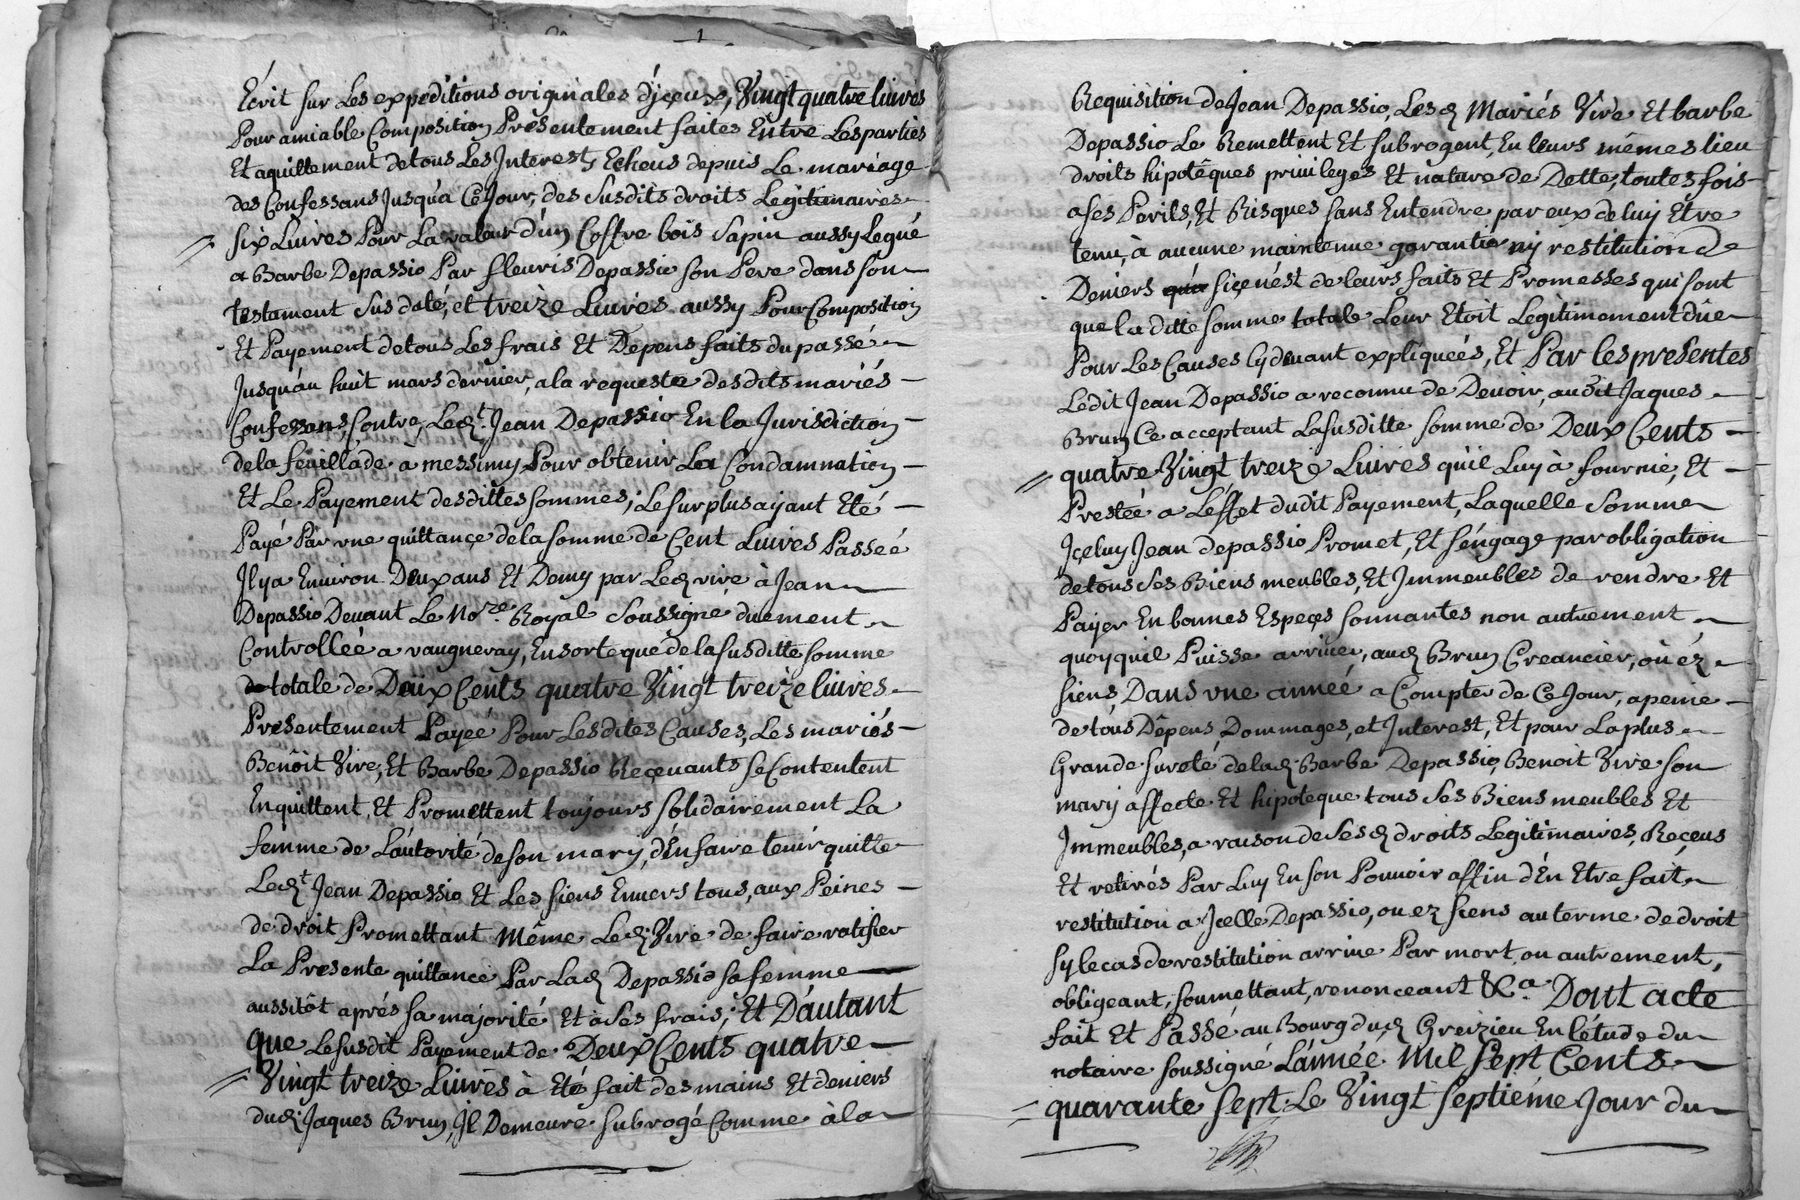 Ecrit sur Les expeditions originales d'jçeux, Vingt quatre livres
Pour amiable Composition Presentement faites Entre Les parties
Et aquittement de tous Les Interest, Echeus depuis Le mariage
des Confessans Jusqu'a Ce Jour, des Susdits droits Legitimaires
Six Livres Pour La valeur d'un Coffre bois Sapin aussy Legué
a Barbe Depassio Par fleuris Depassio son Pere dans son
testament Sus daté, et treize Livres aussy Pour Composition
Et Payement de tous Les frais Et Depens faits du passé
Jusqu'au huit mars dernier, a la requeste desdits mariés
Confessans, Contre, Led.t Jean Depassio En la Jurisdiction
de la feüillade à messimy Pour obtenir La Condamnation
Et Le Payement desdittes sommes; Le surplus ajant Eté
Payé Par vne quittançe de la somme de Cent Livres Passeé
Il y a Environ Deux ans Et Demy par Led. vire à Jean
Depassio Devant Le No.re Royal Soussigné, duement
Controllée a vaugneray, En sorte que de la susditte somme
totale de Deux Cents quatre Vingt treize livres
Presentement Payeé Pour Lesdites Causes, Les mariés
Benôit Vire, Et Barbe Depassio Reçevants se Contentent
En quittent, Et Promettent toujours solidairement La
femme de L'autorité de son mary, d'En faire tenir quitte
Led.t Jean Depassio Et Les siens Envers tous, aux Peines
de droit Promettant Même Led. Vire de faire ratifier
La Presente quittance Par Lad. Depassio sa femme
aussitôt aprés sa majorité Et à ses frais; Et D'autant
que Le susdit Payement de Deux Cents quatre
Vingt treize Livres à Eté fait des mains Et deniers
dud. Jaques Brun, Il Demeure subrogé Comme à la
Requisition de Jean Depassio, Lesd. Mariés Vire Et barbe
Depassio Le Remettent Et subrogent, En leurs mêmes lieu
droits hipotêques privileges Et nature de Dette, toutes fois
a ses Perils, Et Risques sans Entendre par eux de luy Etre
tenu, à aucune maintenue garantie ny restitution de
Deniers si çe n'est de leurs faits Et Promesses qui sont
que la ditte somme totale Leur Etoit Légitimement dûe
Pour Les Causes Cydevant expliqueés, Et Par les presentes
Ledit Jean Depassio a reconnu de Devoir, audit Jaques
Brun Ce acceptant La susditte somme de Deux Cents
quatre Vingt treize Livres qu'il Luy à fournie, Et
Prestée a L'effet dudit Payement, Laquelle Somme
Jçeluy Jean depassio Promet, Et s'éngage par obligation
de tous ses Biens meubles, Et Jmmeubles de rendre Et
Payer En bonnes Espeçes sonnantes non autrement
quoy qu'il Puisse arriver, aud. Brun Creancier, où éz
siens, Dans vne anneé a Compter de Ce Jour, a peine
de tous Dêpens, Dommages, et Interest, Et pour La plus
Grande sureté de lad. Barbe Depassio, Benoit Vire son
mary affecte Et hipoteque tous ses Biens meubles Et
Jmmeubles, a raison de sesd. droits Legitimaires, Reçeus
Et retirés Par Luy En son Pouvoir affin d'En Etre fait
restitution a Jcelle Depassio, ou ez siens au terme de droit
sy le cas de restitution arrive Par mort, ou autrement,
obligeant, soumettant, renonceant &c.a Dont acte
fait Et Passé au Bourg dud. Greizieu En L'étude du
notaire soussigné L'année Mil Sept Cents
quarante sept Le Vingt septiéme Jour du